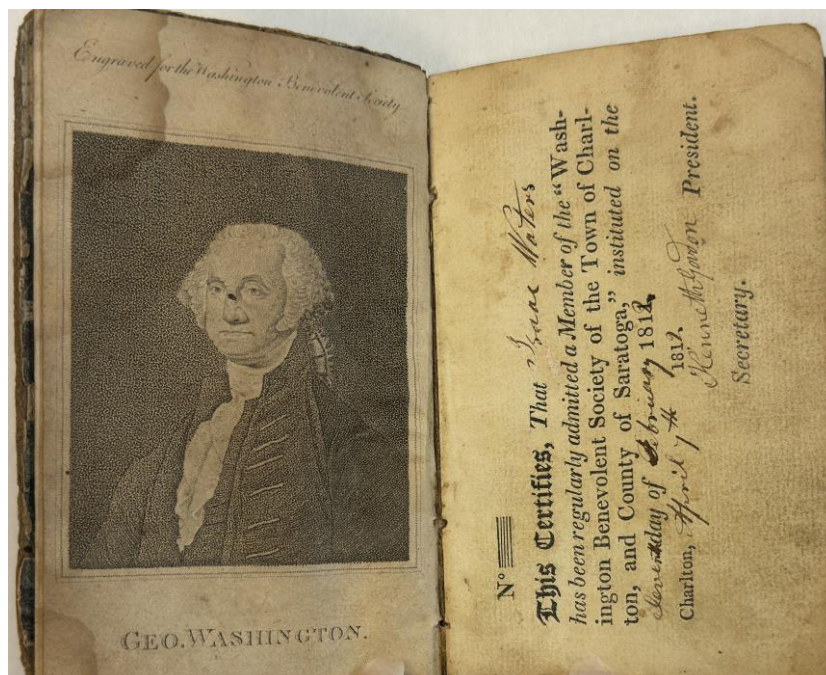 Engraved for the Washington Benevolent Society
GEO. WASHINGTON.
No
This Certifies, That Isaac Waters
has been regularly admitted a Member of the "Wash-
ington Benevolent Society of the Town of Charl-
ton, and County of Saratoga," instituted on the
Seventh day of February 1812.
Charlton, April 7th 1812.
Kenneth Gordon President.
Secretary.